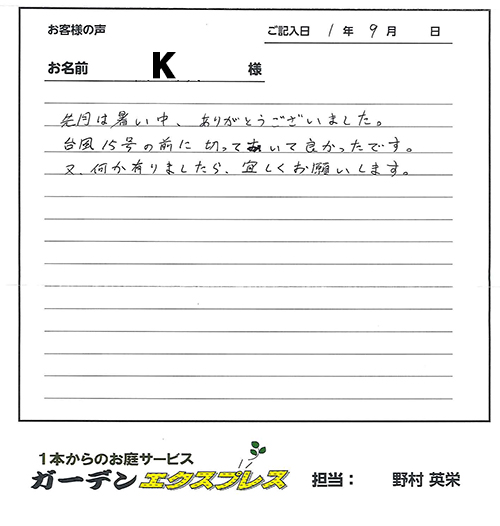 お客様の声
ご記入日 1年 9月 日
お名前 K 様
先月は暑い中、ありがとうございました。
台風15号の前に切っておいて良かったです。
又、何か有りましたら、宜しくお願いします。
1本からのお庭サービス
ガーデンエクスプレス 担当： 野村 英栄